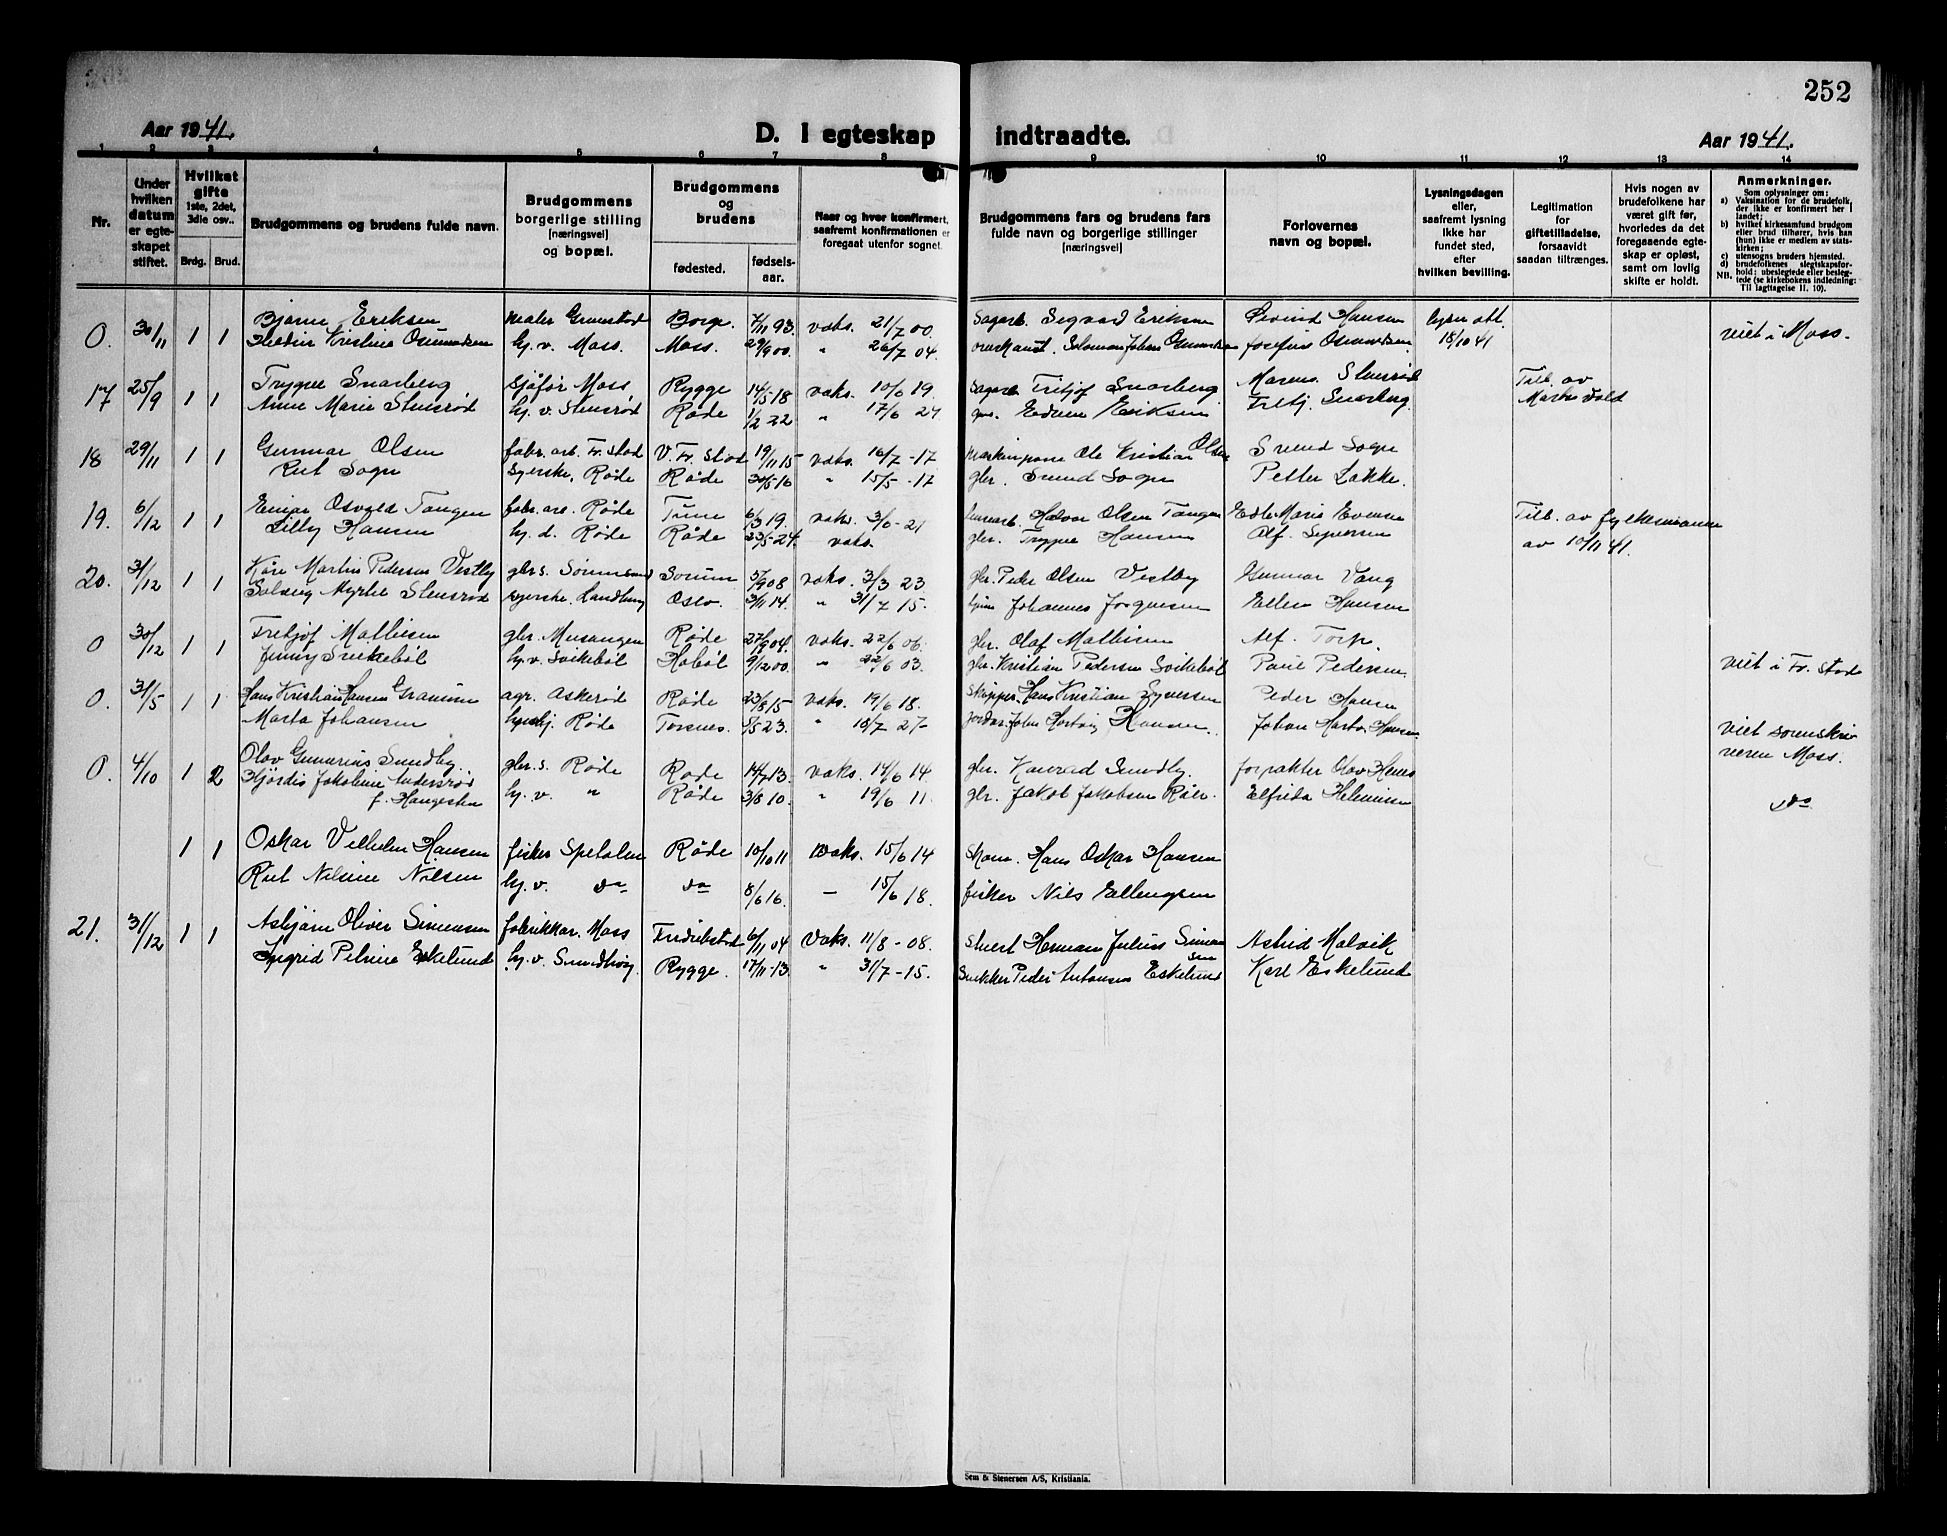 252
Aar 1941.
D. I egteskap indtraadte.
Aar 1941.
1 2 3 4 5 6 7 8 9 10 11 12 13 14
Nr.
Under hvilken datum er egteskapet stiftet.
Hvilket gifte 1ste, 2det, 3die osv..
Brdg. Brud.
Brudgommens og brudens fulde navn.
Brudgommens borgerlige stilling [næringsvei] og bopæl.
Brudgommens og brudens
fødested. fødselsaar.
Naar og hvor konfirmert, saafremt konfirmationen er foregaat utenfor sognet.
Brudgommens fars og brudens fars fulde navn og borgerlige stillinger [næringsvei]
Forlovernes navn og bopæl.
Lysningsdagen eller, saafremt lysning ikke har fundet sted, efter hvilken bevilling.
Legitimation for giftetilladelse, forsaavidt saadan tiltrænges.
Hvis nogen av brudefolkene har været gift før, hvorledes da det foregaaende egteskap er opløst, samt om lovlig skifte er holdt.
Anmerkninger.
Som oplysninger om:
a) Vaksination for de brudefolk, der ikke er konfirmert her i landet;
b) hvilket kirkesamfund brudgom eller brud tilhører, hvis han (hun) ikke er medlem av statskirken;
c) utensogns bruders hjemsted.
d) brudefolkenes slegtskapsforhold: ubeslegtede eller beslegtede (se kirkebokens indledning: Til Iagttagelse II. 10).
NB.
0. 30/11 1 1 Bjarne Eriksen maler Borge. 7/11 93. vaks. 21/7 00 Sagarb. Sigvard Eriksen Øivind Hansen 18/10 41 viet i Moss.
Kristine Osmundsen hj. v. Moss. Moss. 29/9 00 " 26/7 04. Osmundsen
17 25/9 1 1 Trygve Snarberg sjåfør Moss Rygge 14/5 18 vaks. 10/6 19 Fritjof Snarberg Till. av
Anne Marie Stensrød hj. v. Stensrød Råde 1/2 22 " 17/6 24 Edvin Eriksen Snarberg.
18 29/11 1 1 Gunnar Olsen fabr. arb. Fr. stad V. Fr. stad 19/11 15 vaks. 16/7 -17 Ole Kristian Olsen Svend Sogn
Rut Sogn syerske. Råde Råde 30/5 16 " 15/5 -17 gbr. Svend Sogn Petter Løkke.
19. 6/12 1 1 Einar Osvald Tangen fabr. arb. Råde Tune 6/3 19. vaks. 3/6 - 21 Halvor Olsen Tangen Marie Evensen Till. av fylkesmannen
Lilly Hansen hj. d. Råde Råde 23/5 - 24. vaks. gbr. Trygve Hansen Alf. Syversen av 10/11 41.
20. 31/12 1 1 Kåre Martin Pedersen Vestby gbr s. Sørum 5/9 08 vaks. 3/3 23 gbr. Peder Olsen Vestby Gunnar Vang
Solveig Myrtle Stensrød syerske. Oslo. 3/11 14. " 31/7 15. Johannes Jørgensen Ellen Hansen
0 30/12 1 1 Fritjof Mathisen gbr. Råde 27/9 04. vaks. 22/6 06. gbr. Olaf Mathisen Alf. Torp.
Jenny Svikebøl hj. v. Svikebøl Hobøl 9/12 00. " 22/6 03. gbr. Kristian Pedersen Svikebøl Paul Pedersen. viet i Fr. stad
0. 31/5 1 1 Hans Kristian Hansen agr. Askerød Råde 23/8 15 vaks. 19/6 18. Skipper. Hans Kristian Syversen Peder Hansen
Marta Johansen Råde Torsnes. 8/5 23. " 18/7 27 Hansen. Johan viet sorenskriveren Moss.
0. 4/10 1 2 Olav Gunerius Sundby. gbr. s. Råde Råde 14/7 13 vaks. 14/6 14. gbr. Konrad Sundby. forpakter Olav
Hjørdis Jakobine f. Haugesten hj. v. " Råde 3/8 10. " 19/6 11. gbr. Jakob Jakobsen Elfrida do
1 1 Oskar Vilhelm Hansen fisker Råde 10/10 11 vaks. 15/6 14 Hans Oskar Hansen
Rut Nilsine Nilsen hj. v. do do 8/6 16. – 15/6 18. fisker Nils Ellingsen
21. 31/12 1 1 Asbjørn Oliver Simensen fabrikkar. Moss Fredrikstad 6/11 04 Vaks. 11/8 - 08. Herman Julius Simensen Astrid Malvik
Ingrid Eskelund hj. v. Rygge. 17/11 - 13. " 31/7 - 15. Snekker Peder Antonsen Eskelund Karl Eskelund
Sem & Stenersen A/S, Kristiania.